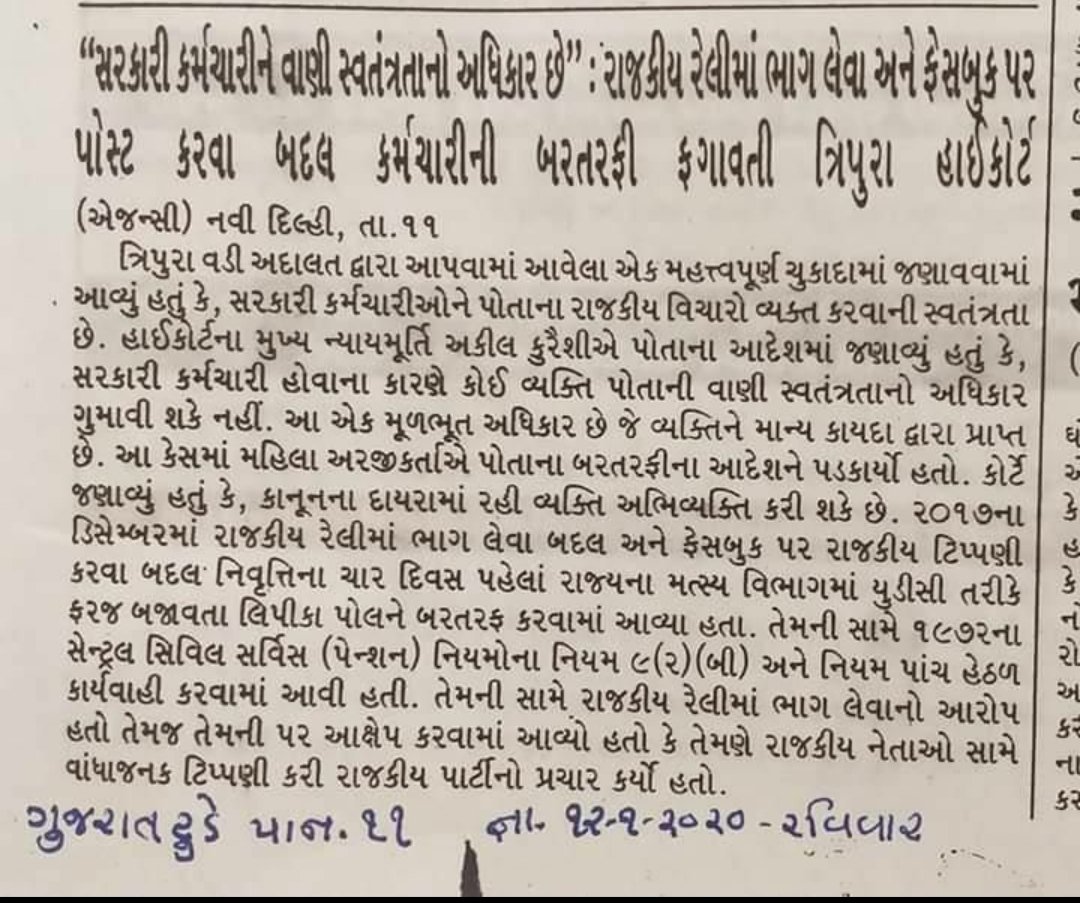 “સરકારી કર્મચારીને વાણી સ્વતંત્રતાનો અધિકાર છે” : રાજકીય રેલીમાં ભાગ લેવા અને ફેસબુક પર
પોસ્ટ કરવા બદલ કર્મચારીની બરતરફી ફગાવતી ત્રિપુરા હાઈકોર્ટ
(એજન્સી) નવી દિલ્હી, તા.૧૧
ત્રિપુરા વડી અદાલત દ્વારા આપવામાં આવેલા એક મહત્ત્વપૂર્ણ ચુકાદામાં જણાવવામાં
આવ્યું હતું કે, સરકારી કર્મચારીઓને પોતાના રાજકીય વિચારો વ્યક્ત કરવાની સ્વતંત્રતા
છે. હાઈકોર્ટના મુખ્ય ન્યાયમૂર્તિ અકીલ કુરૈશીએ પોતાના આદેશમાં જણાવ્યું હતું કે,
સરકારી કર્મચારી હોવાના કારણે કોઈ વ્યક્તિ પોતાની વાણી સ્વતંત્રતાનો અધિકાર
ગુમાવી શકે નહીં. આ એક મૂળભૂત અધિકાર છે જે વ્યક્તિને માન્ય કાયદા દ્વારા પ્રાપ્ત
છે. આ કેસમાં મહિલા અરજીકર્તાએ પોતાના બરતરફીના આદેશને પડકાર્યો હતો. કોર્ટે
જણાવ્યું હતું કે, કાનૂનના દાયરામાં રહી વ્યક્તિ અભિવ્યક્તિ કરી શકે છે. ૨૦૧૭ના
ડિસેમ્બરમાં રાજકીય રેલીમાં ભાગ લેવા બદલ અને ફેસબુક પર રાજકીય ટિપ્પણી
કરવા બદલ નિવૃત્તિના ચાર દિવસ પહેલાં રાજ્યના મત્સ્ય વિભાગમાં યુડીસી તરીકે
ફરજ બજાવતા લિપીકા પોલને બરતરફ કરવામાં આવ્યા હતા. તેમની સામે ૧૯૭૨ના
સેન્ટ્રલ સિવિલ સર્વિસ (પેન્શન) નિયમોના નિયમ ૯(૨)(બી) અને નિયમ પાંચ હેઠળ
કાર્યવાહી કરવામાં આવી હતી. તેમની સામે રાજકીય રેલીમાં ભાગ લેવાનો આરોપ
હતો તેમજ તેમની પર આક્ષેપ કરવામાં આવ્યો હતો કે તેમણે રાજકીય નેતાઓ સામે
વાંધાજનક ટિપ્પણી કરી રાજકીય પાર્ટીનો પ્રચાર કર્યો હતો.
ગુજરાત ટુડે પાન. ૧૧ તા. ૧૨-૧-૨૦૨૦ - રવિવાર